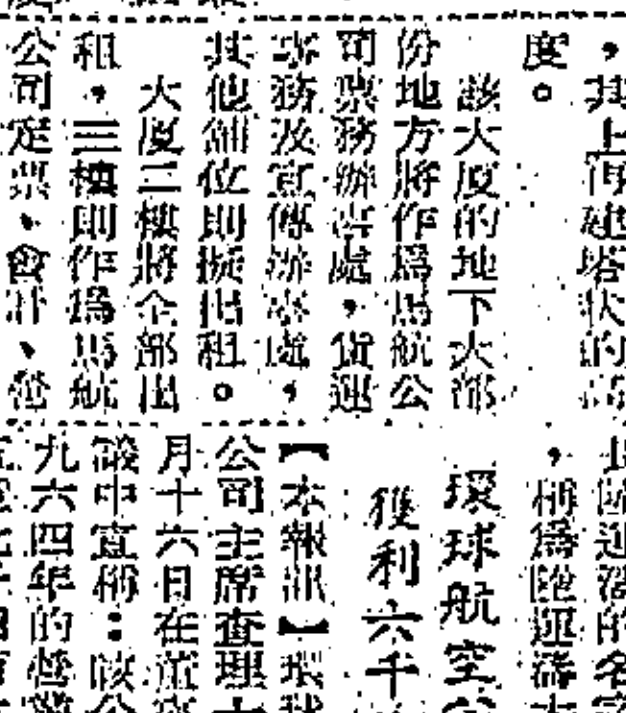 ，其上再建塔狀的高
度。
該大厦的地下大部
份地方將作爲馬航公
司票務辦事處，貨運
事務及宣傳辦事處，
其他舖位則擬出租。
大厦二樓將全部出
租，三樓則作爲馬航
公司定票、會計、營
，稱爲陸運
環球航空
獲利六千
【本報訊】環球
公司主席查理
月十六日在董
議中宣稱：該公
九六四年的營業